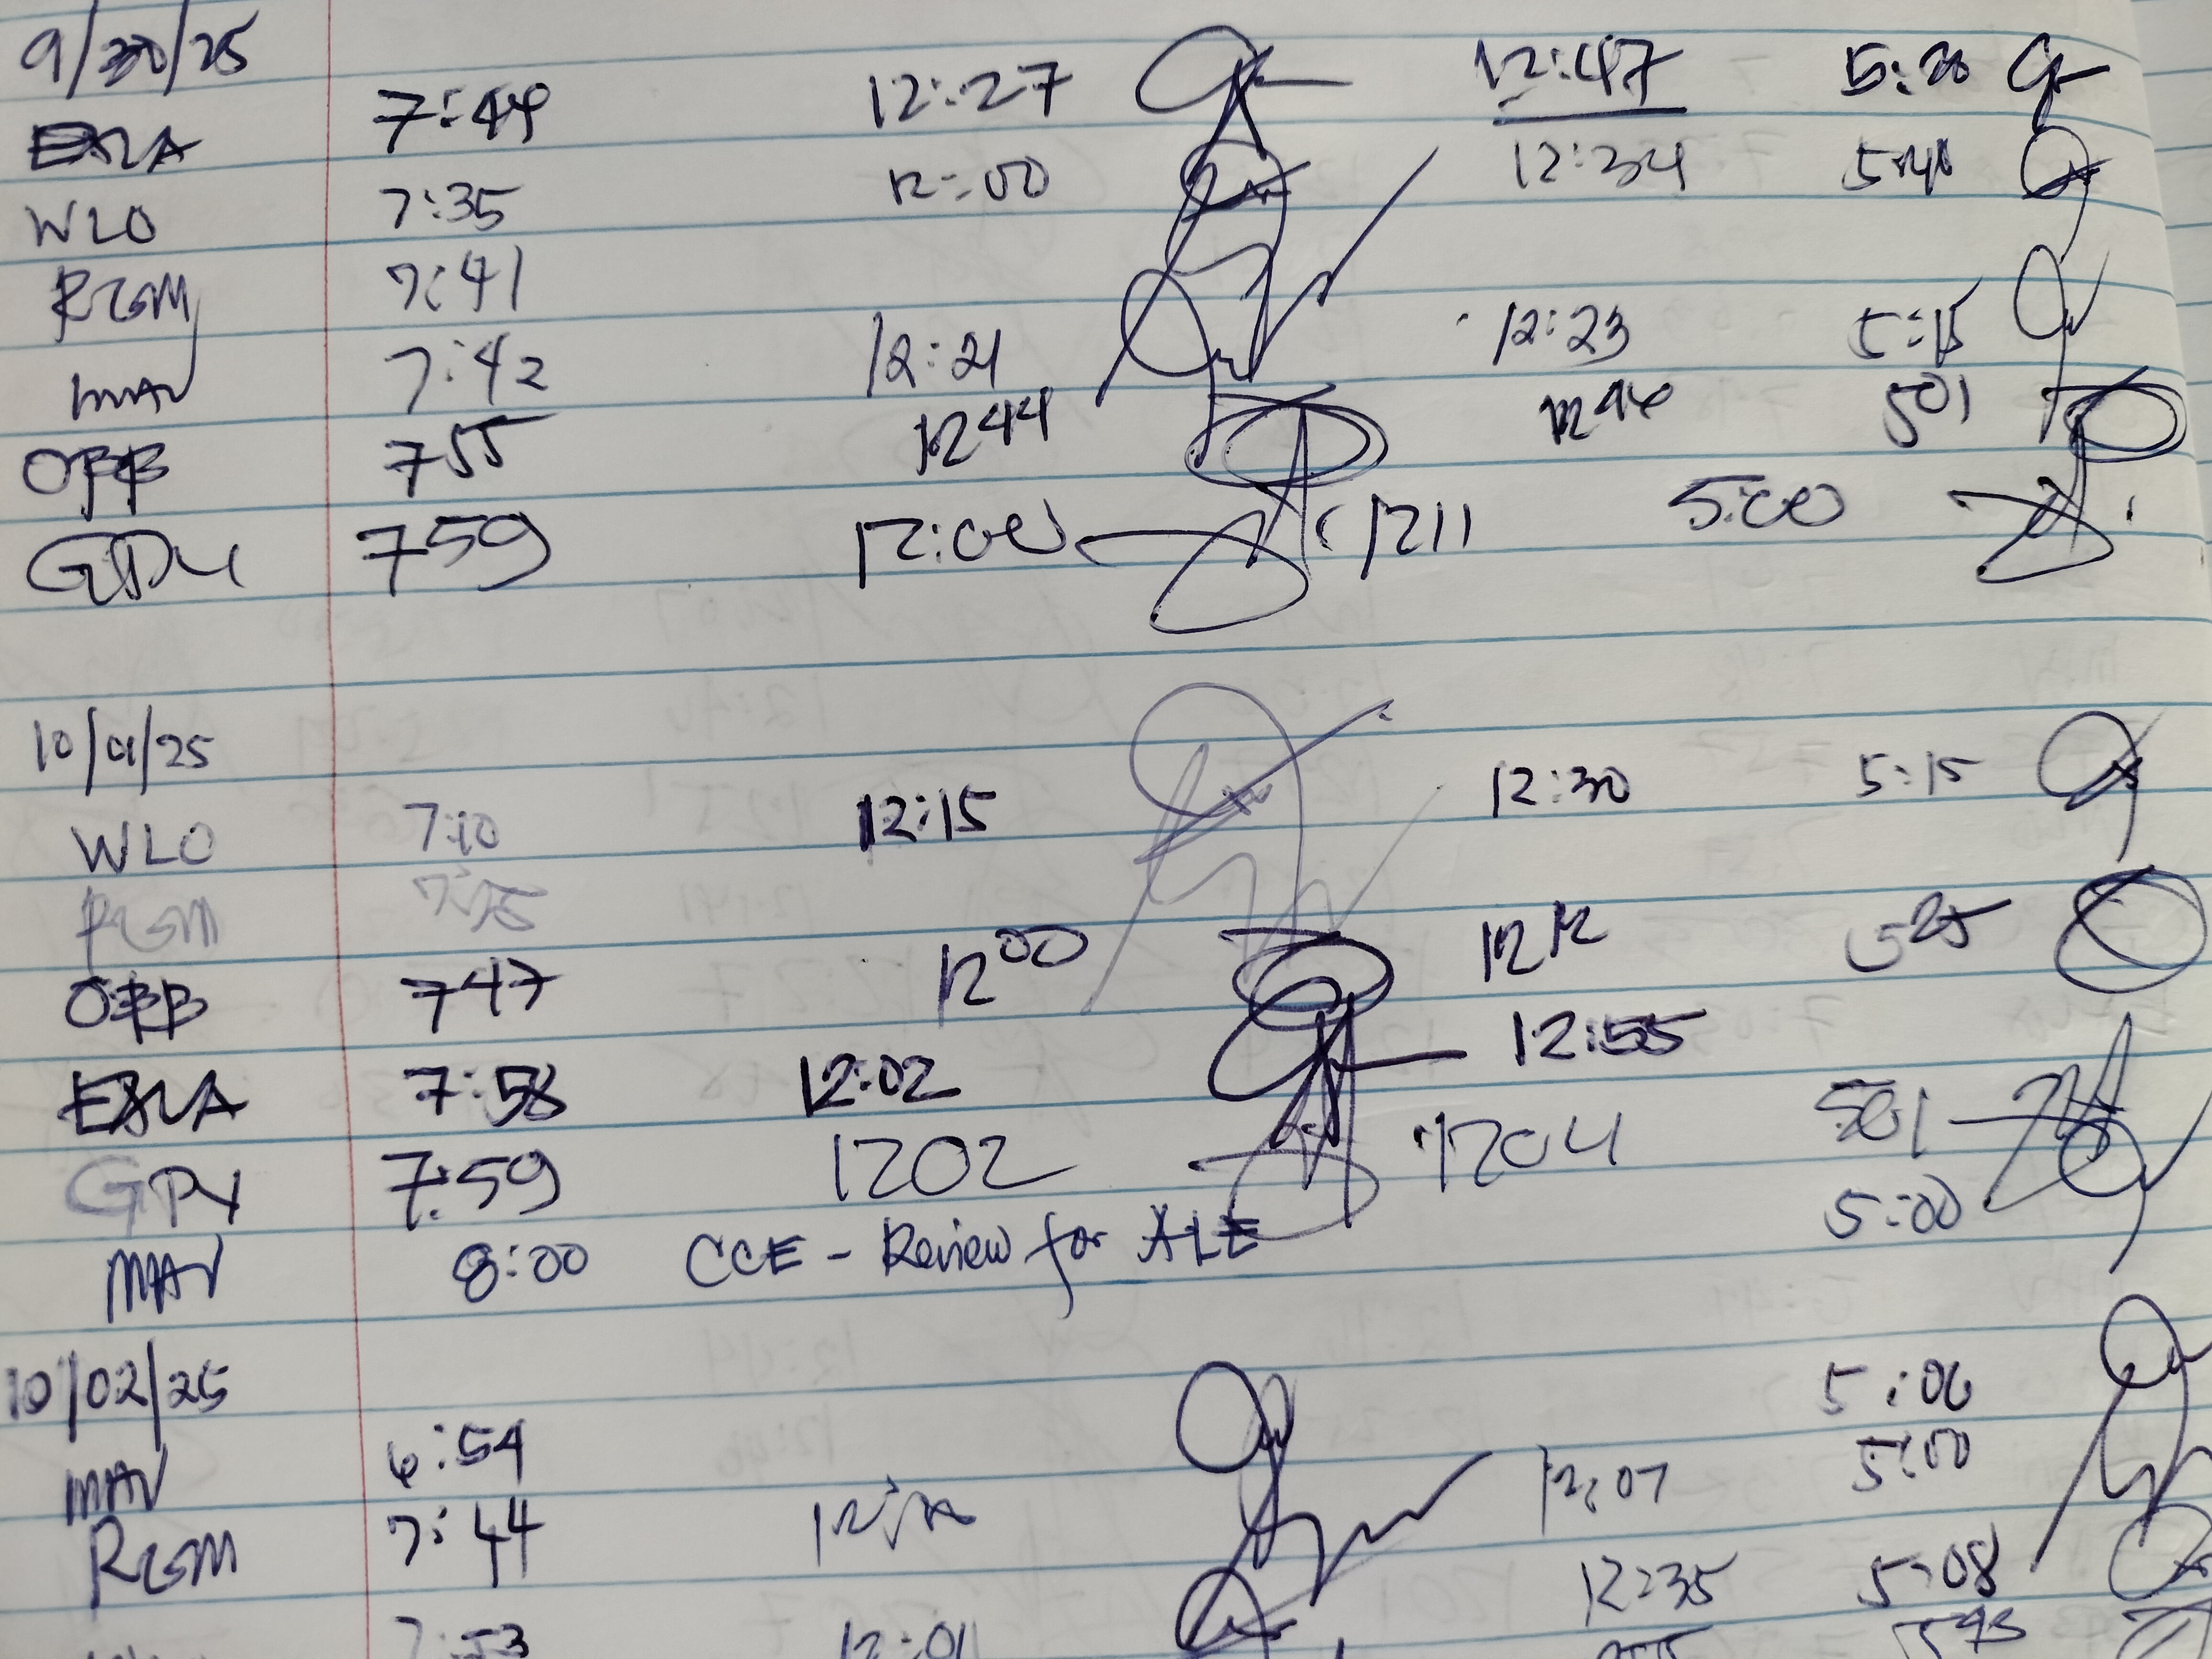 9/30/25
EXLA 7:44 12:27 12:47 5:20
WLO 7:35 12:00 12:34
RGM 7:41
MAV 7:42 12:21 12:23 5:15
OBB 755 1244 501
GPY 759 12:00 1211 5:00
10/01/25
WLO 7:10 12:15 12:30 5:15
RGM
OBB 747 1200 1212 525
EXLA 7:58 12:02 12:55
GPY 7:59 1202 1204 501
MAV 8:00 CCE - Review for ALE 5:00
10/02/25
MAV 6:54 5:06
RGM 7:44 12:07 5:00
7:53 12:01 12:35 5:08